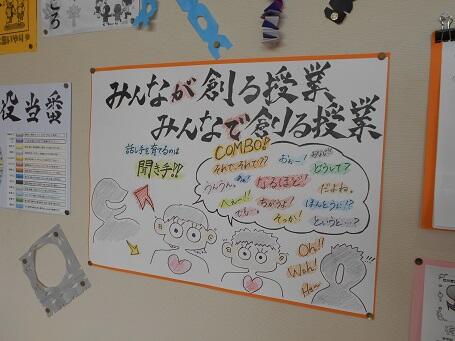 ころ
役当番
みんなが創る授業
みんなで創る授業
話し手を育てるのは
聞き手!!
COMBO!!
それで、それで??
あぁー!
どうして?
うんうん。
なるほど!
だよね。
へぇー!!
ちがうよ!
ほんとうに!?
でも…
そっか!
というと…?
Oh!!
Woh!